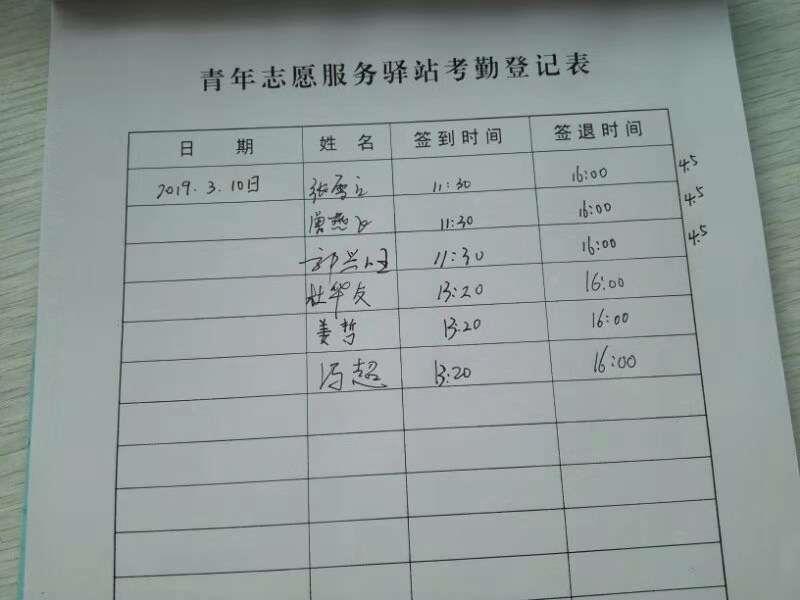 青年志愿服务驿站考勤登记表
日 期 姓 名 签到时间 签退时间
2019.3.10日 张雪 11:30 16:00 4.5
11:30 16:00 4.5
郭兴 11:30 16:00 4.5
杜华友 13:20 16:00
姜哲 13:20 16:00
冯超 13:20 16:00